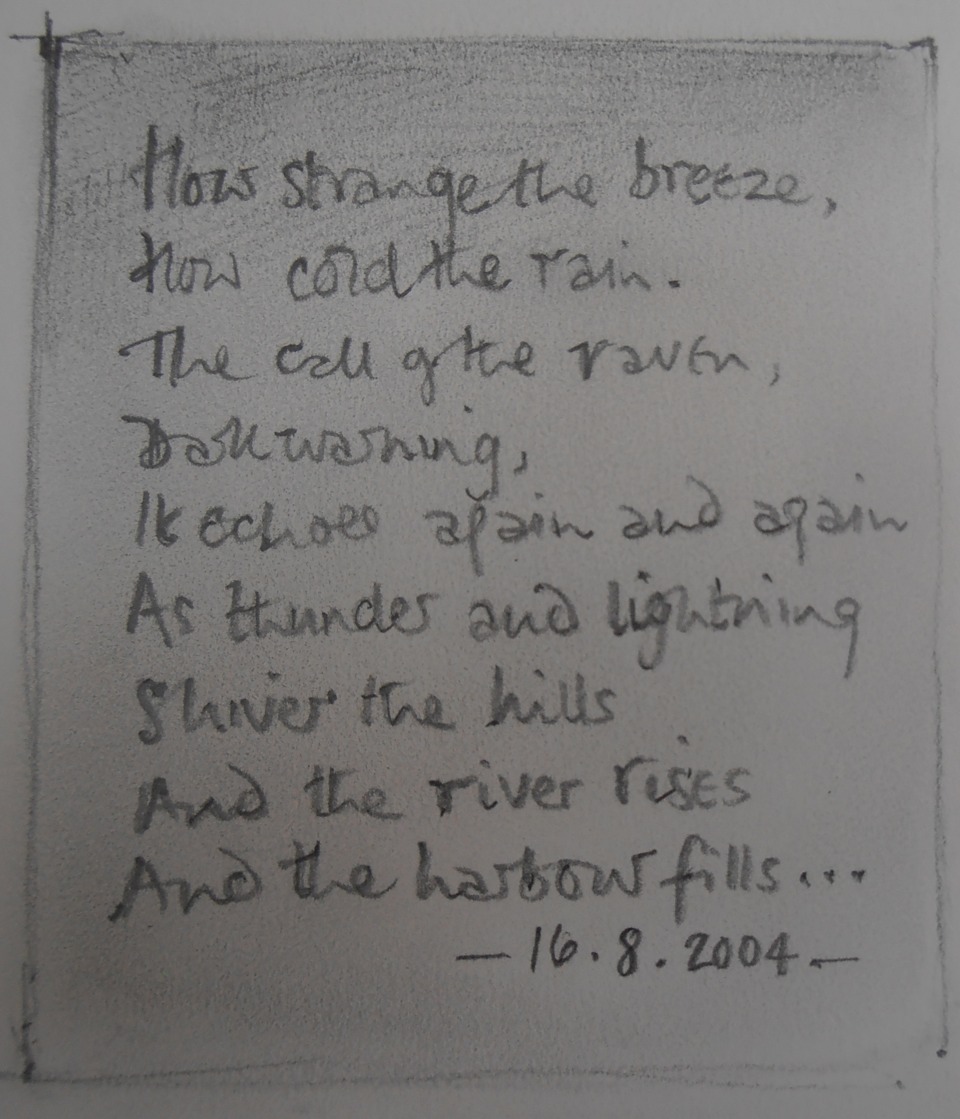 How strange the breeze,
How cold the rain.
The call of the raven,
Dark warning,
It echoes again and again
As thunder and lightning
Shiver the hills
And the river rises
And the harbour fills...
— 16.8.2004. —